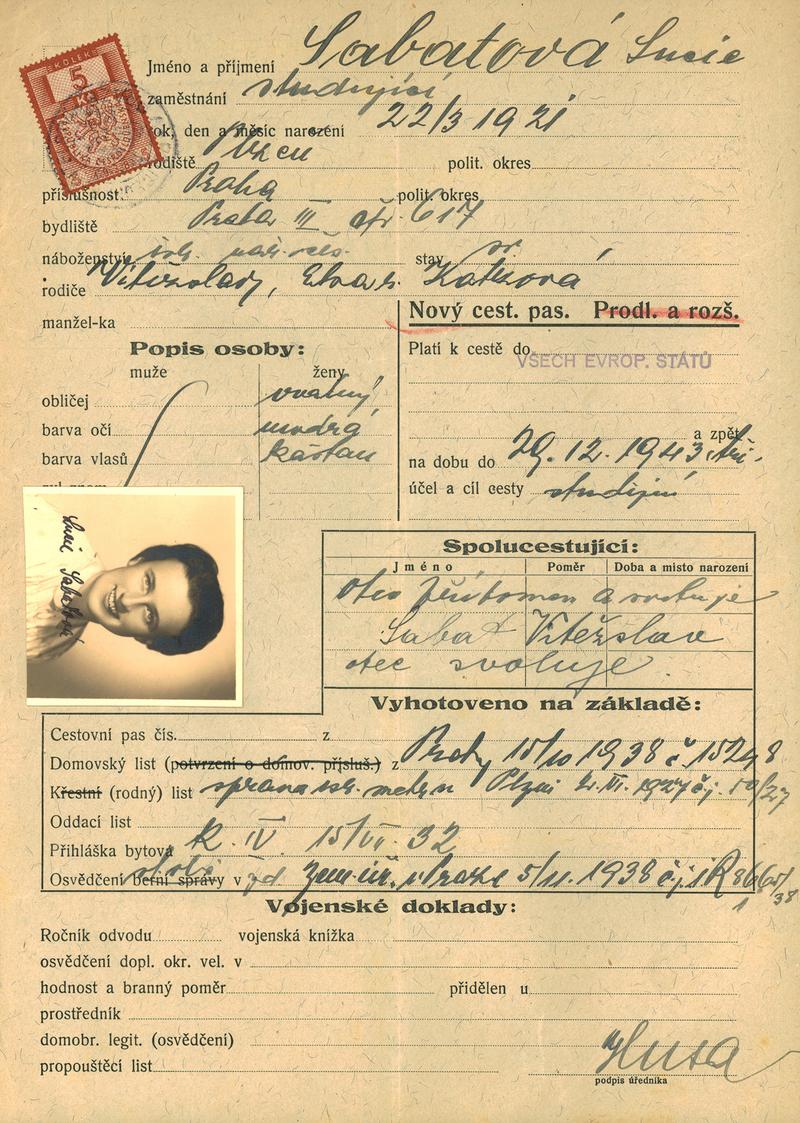 KOLEK
5
Kč
Jméno a příjmení Sabatová Lucie
zaměstnání studující
rok, den a měsíc narození 22/3 1921
rodiště Plzeň polit. okres
příslušnost Praha polit. okres
bydliště Praha III čp. 617
náboženství stav sv.
rodiče Vítězslav, Katzová
manžel-ka
Nový cest. pas. Prodl. a rozš.
Popis osoby:
muže ženy
obličej oválný
barva očí modrá
barva vlasů kaštan
Platí k cestě do
VŠECH EVROP. STÁTŮ
a zpět
na dobu do 29.12.1943
účel a cíl cesty studijní
Lucie Sabatová
Spolucestující:
Jméno Poměr Doba a místo narození
otec přítomen a svoluje
Sabat Vítězslav
otec svoluje
Vyhotoveno na základě:
Cestovní pas čís. z
Domovský list (potvrzení o domov. přísluš.) z Prahy 15/10 1938 č.
Křestní (rodný) list Plzni
Oddací list
Přihláška bytová K. IV 15/VII 32
Osvědčení berní správy v zem. úř. v Praze 5/11. 1938 č.j.
Vojenské doklady:
Ročník odvodu vojenská knížka
osvědčení dopl. okr. vel. v
hodnost a branný poměr přidělen u
prostředník
domobr. legit. (osvědčení)
propouštěcí list
podpis úředníka